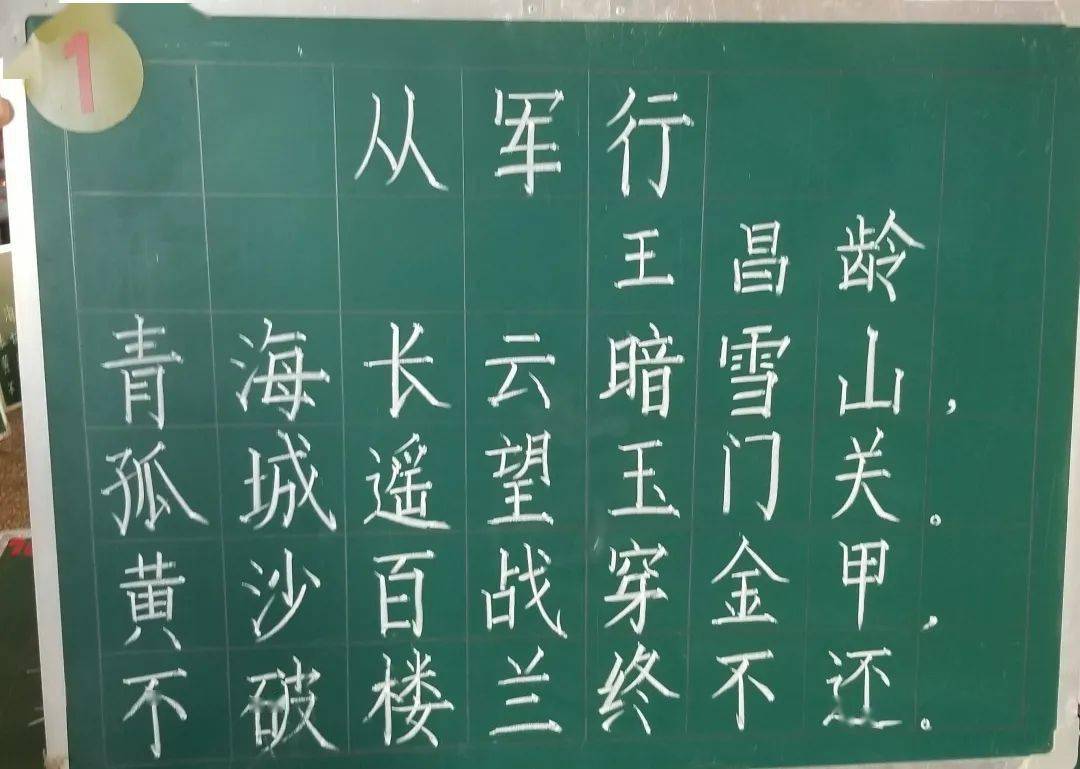 1
从军行
王昌龄
青海长云暗雪山，
孤城遥望玉门关。
黄沙百战穿金甲，
不破楼兰终不还。